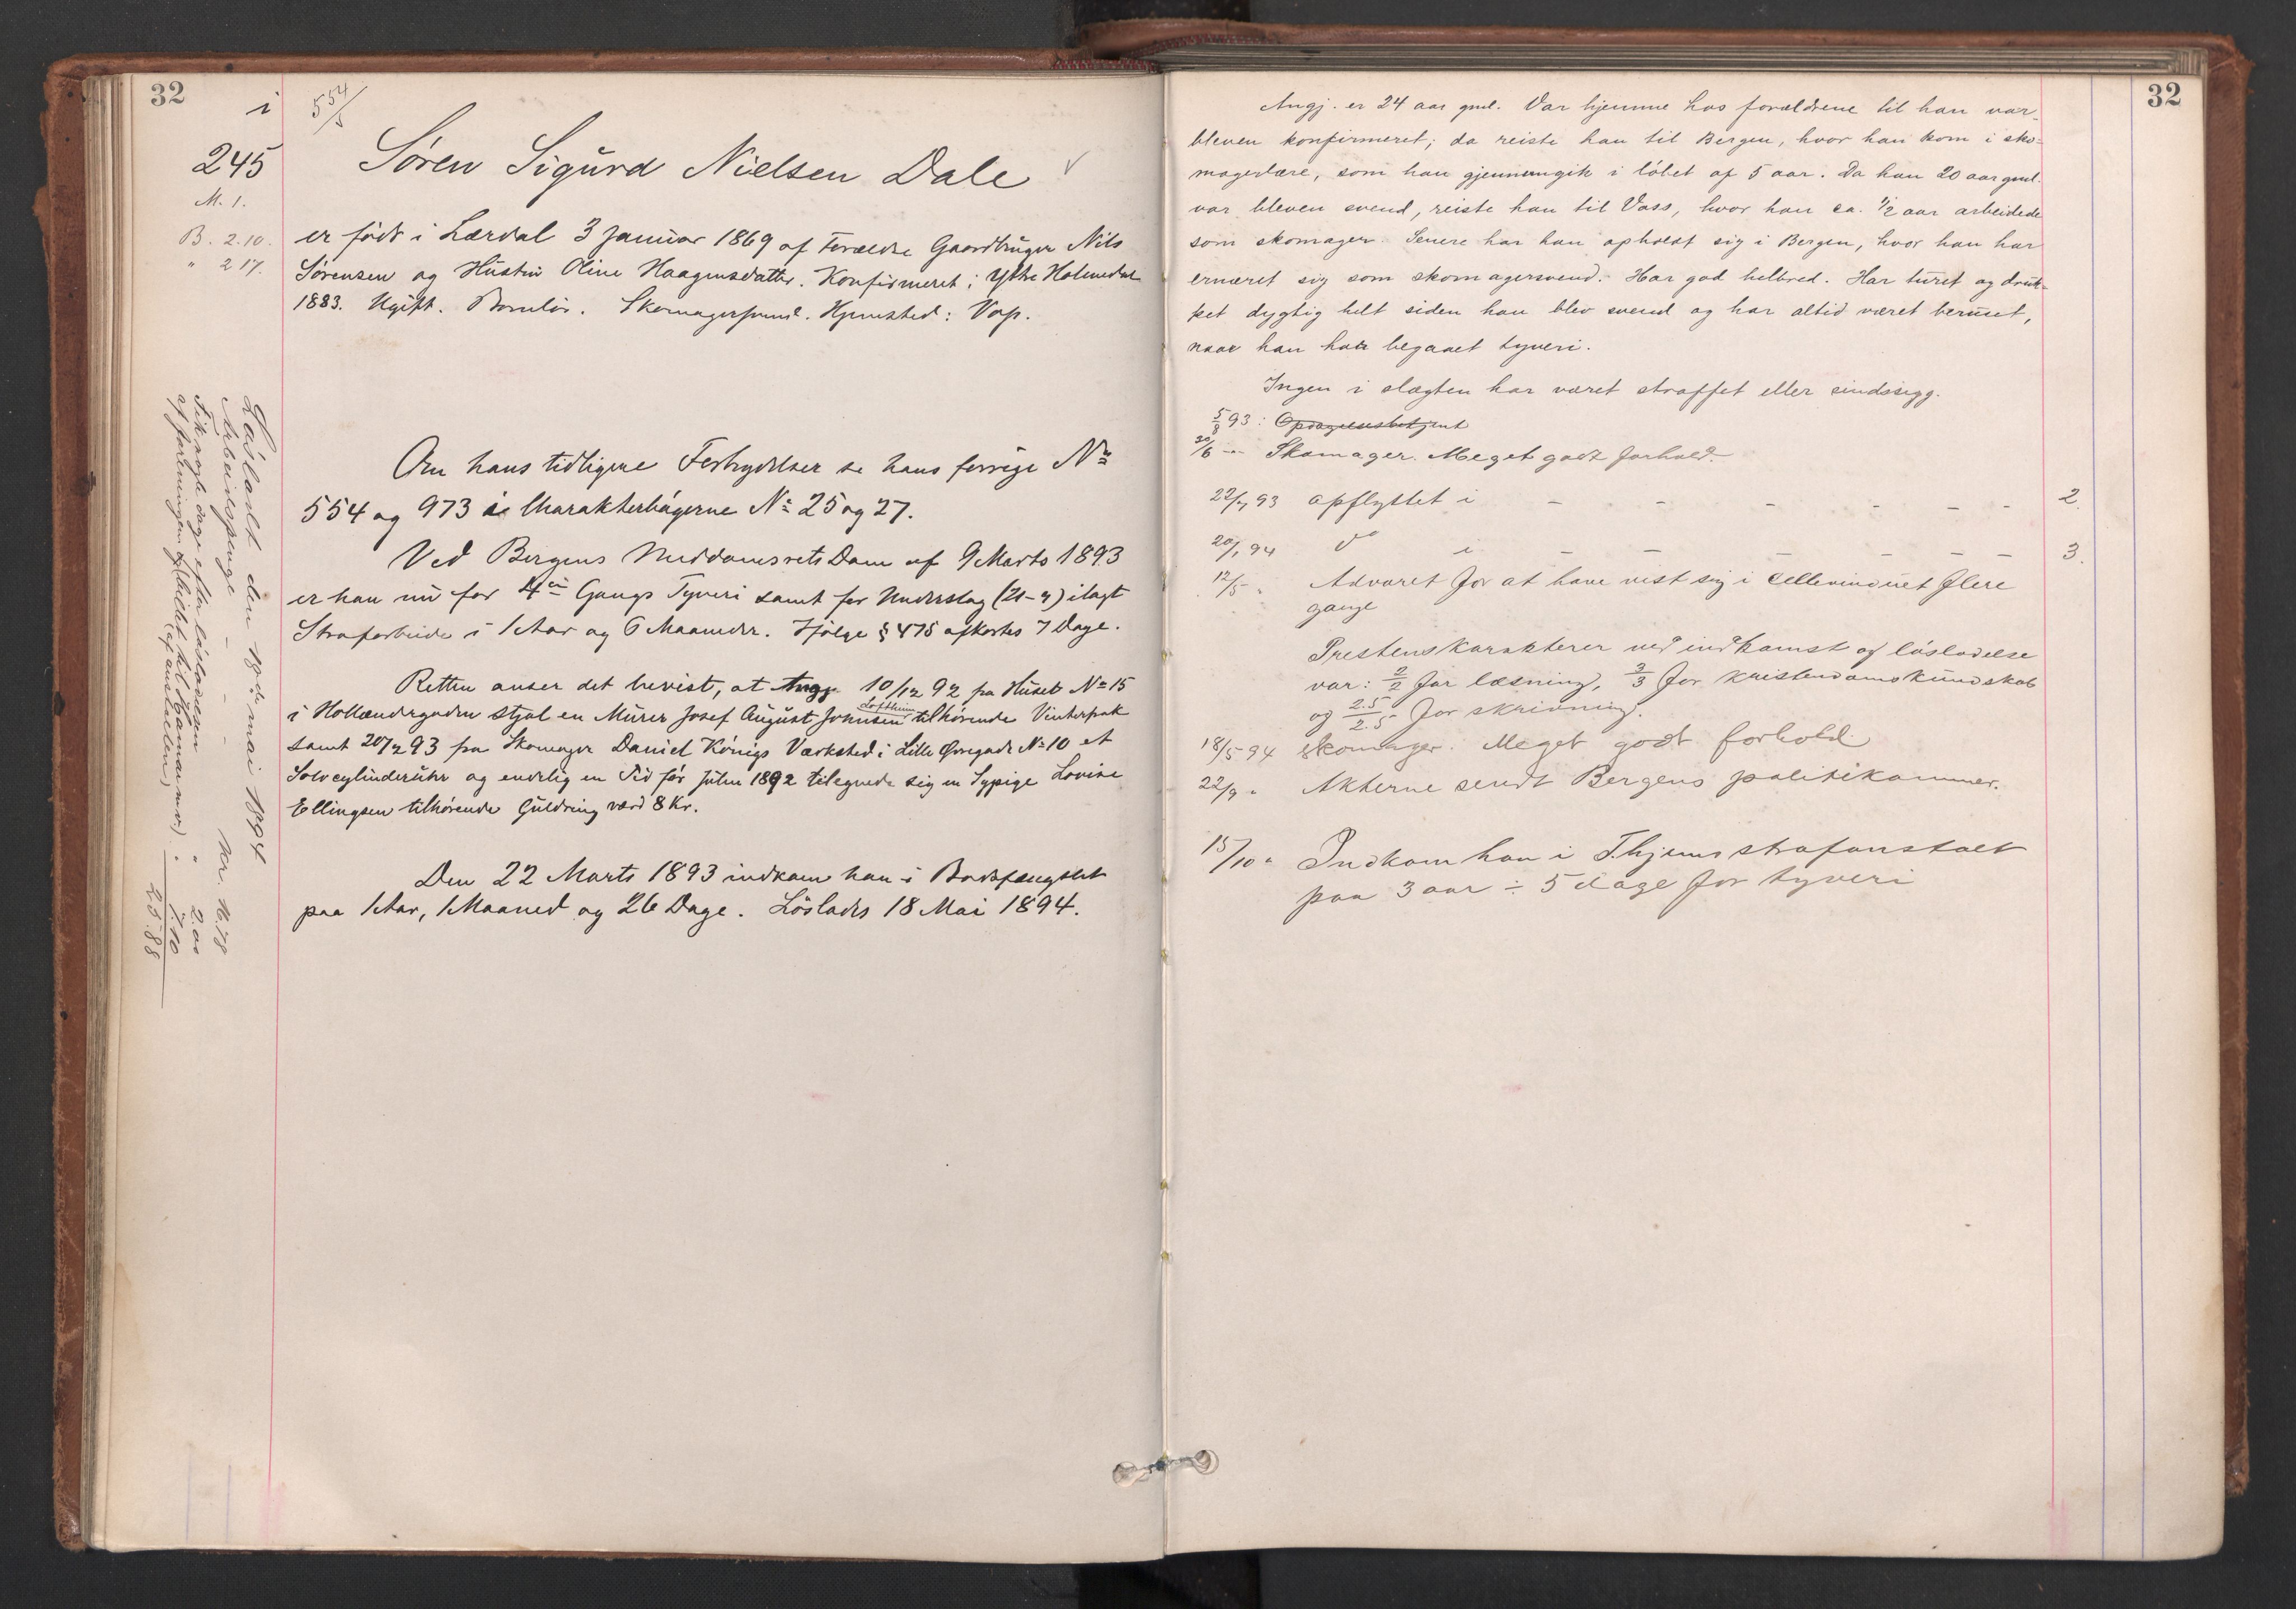 32
i
554/5
245
Sören Sigurd Nielsen Dale
M. 1.
B. 2.10.
" 2 17.
er född i Lærdal 3 Januar 1869 af Forældre Gaardbruger Nils
Sørensen og Hustru Oline Haagensdatter. Konfirmeret i Ytre Holmedal
1883. Ugift. Barnlös. Skomagersvend. Hjemsted: Vos.
Om hans tidligere Forbrydelser se hans forrige No
554 og 973 i Charakterbøgerne No 25 og 27.
Ved Bergens Meddomsrets Dom af 9 Marts 1893
er han nu for 4de Gangs Tyveri samt for Underslag (21-4) ilagt
Strafarbeide i 1 Aar og 6 Maaneder. Ifølge § 475 afkortes 7 Dage.
Retten anser det bevist, at Angj. 10/12 92 fra Huset No 15
i Hollændergaden stjal en Murer Josef August Johnsen Loftheim tilhørende Vinterfrak
samt 20/2 93 fra Skomager Daniel Königs Værksted i Lille Øvregade No 10 et
Sølvcylinderuhr og endelig en Tid før Julen 1892 tilegnede sig en Sypige Lovise
Ellingsen tilhørende Guldring værd 8 Kr.
Den 22 Marts 1893 indkom han i Bodsfængslet
paa 1 Aar, 1 Maaned og 26 Dage. Löslades 18 Mai 1894.
Lösladt den 18de mai 1894
Arbeidspenge - - - Kr. 16.78
Fik nogle dage efter lösladelsen " 2.00
af foreningen og billet til Hamar 7.10
(af anstalten)
25.88
32
Angj. er 24 aar gml. Var hjemme hos forældrene til han var
bleven konfirmeret; da reiste han til Bergen, hvor han kom i sko-
magerlære, som han gjennemgik i löbet af 5 aar. Da han 20 aar gml.
var bleven svend, reiste han til Voss, hvor han ca. 1/2 aar arbeidede
som skomager. Senere har han opholdt sig i Bergen, hvor han har
ernæret sig som skomagersvend. Har god helbred. Har turet og druk-
ket dygtig helt siden han blev svend og har altid været beruset,
naar han har begaaet tyveri.
Ingen i slægten har været straffet eller sindssyg.
5/8 93: Opdagelsesbetjent
30/6 - Skomager. Meget godt forhold.
22/7 93 opflyttet i - - - - - - 2.
20/1 94 do i - - - - - - 3.
12/5 " Advaret for at have vist sig i cellevinduet flere
gange
Prestens karakterer ved indkomst og lösladelse
var: 2/2 for læsning, 3/3 for kristendomskundskab
og 2.5/2.5 for skrivning.
18/5 94 Skomager. Meget godt forhold
22/9 " Akterne sendt Bergens politikammer.
15/10 " Indkom han i T.hjems strafanstalt
paa 3 aar ÷ 5 dage for tyveri